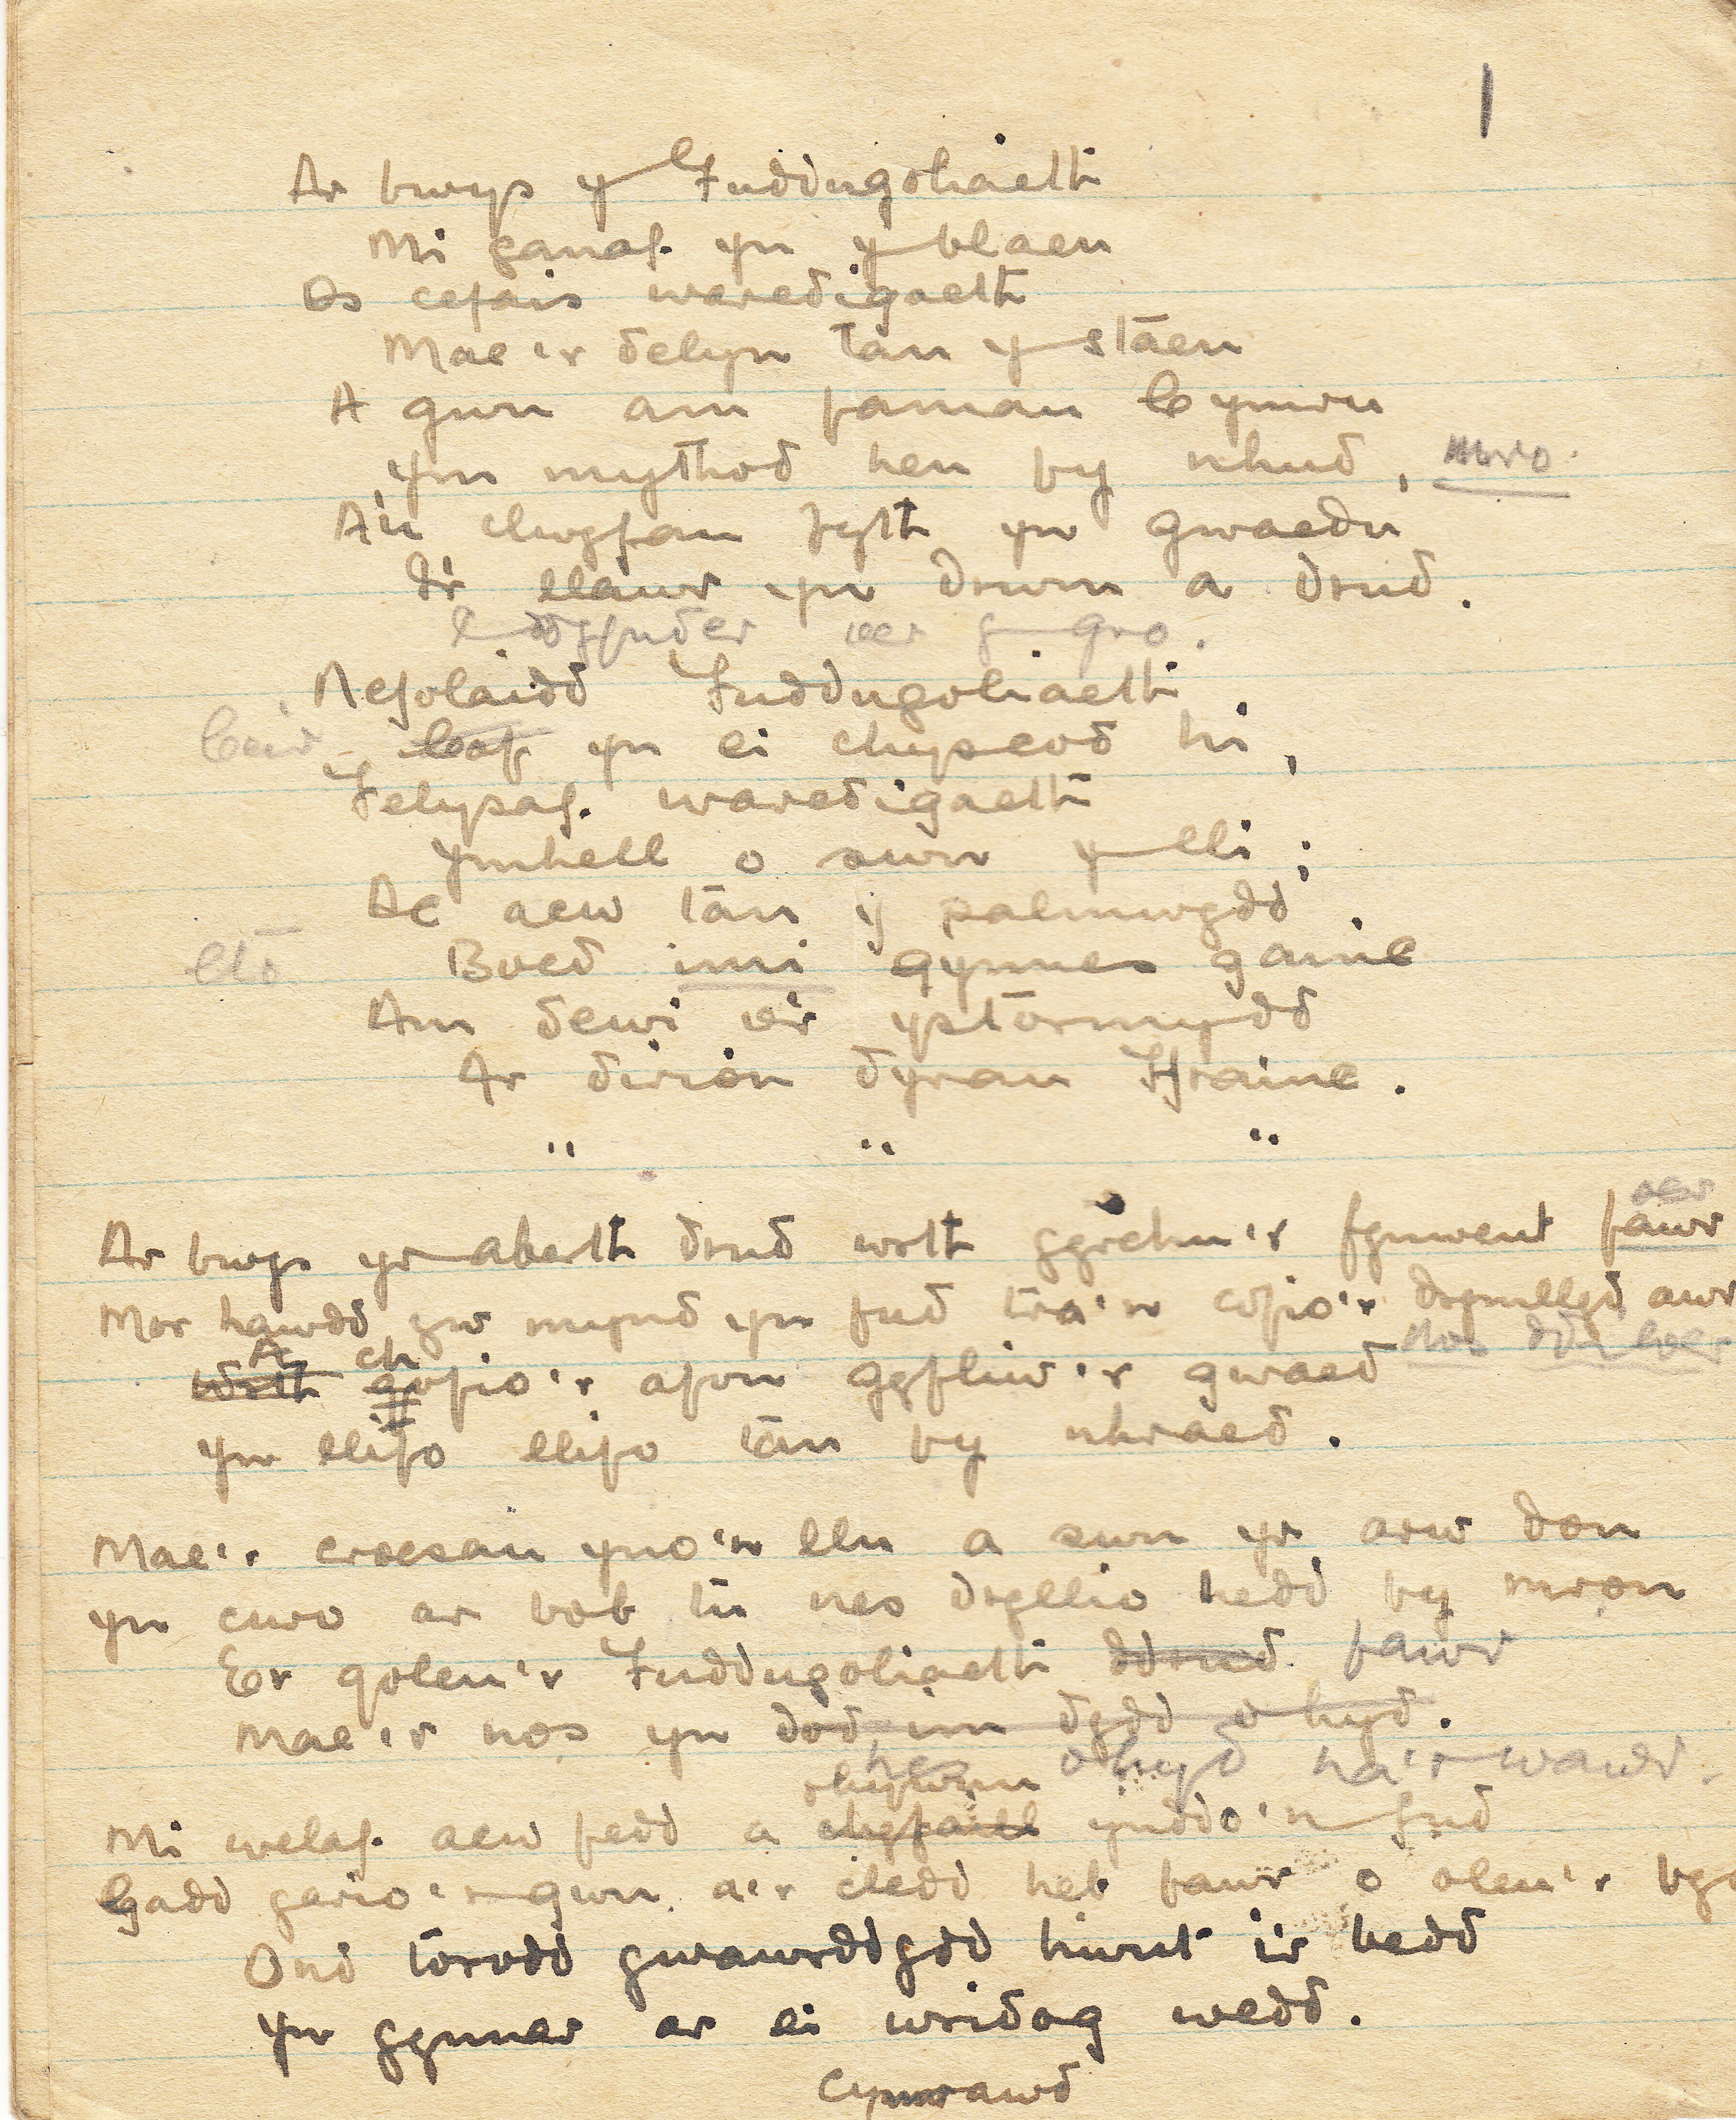 1
Ar bwys y Fuddugoliaeth
Mi ganaf yn y blaen
Os cefais waredigaeth
Mae'r delyn tan y staen
A gwn am famau Cymru
Ym mythod hen fy nhud, mro.
A'u clwyfau fyth yn gwaedu
I'r llawr yn drwm a drud.
y gro.
Nefolaidd Fuddugoliaeth
Ceir Caf yn ei chysgod hi,
Felysaf waredigaeth
Ymhell o swn y lli;
Ac acw tan y palmwydd
eto Boed imi gynnes gainc
Am dewi o'r ystormydd
Ar dirion dyrau Ffrainc.
" " "
oer
Ar bwys yr aberth drud wrth gyrchu'r fynwent fawr
Mor hawdd yw mynd yn fud tra'n cofio'r drymllyd awr
A ch
Wrth gofio'r afon gyfliw'r gwaed
Yn llifo llifo tan fy nhraed.
Mae'r croesau yno'n llu a swn yr arw don
Yn curo ar bob tu nes dryllio hedd fy mron
Er goleu'r Fuddugoliaeth ddrud fawr
Mae'r nos yn dod im dydd o hyd.
hes o hyd na'r wawr.
rhywun
Mi welaf acw fedd a chyfaill ynddo'n fud
Gadd gario'r gwn a'r cledd heb fawr o oleu'r
Ond torodd gwawrddydd hwnt i'r bedd
Yn gynnar ar ei wridog wedd.
Cymrawd